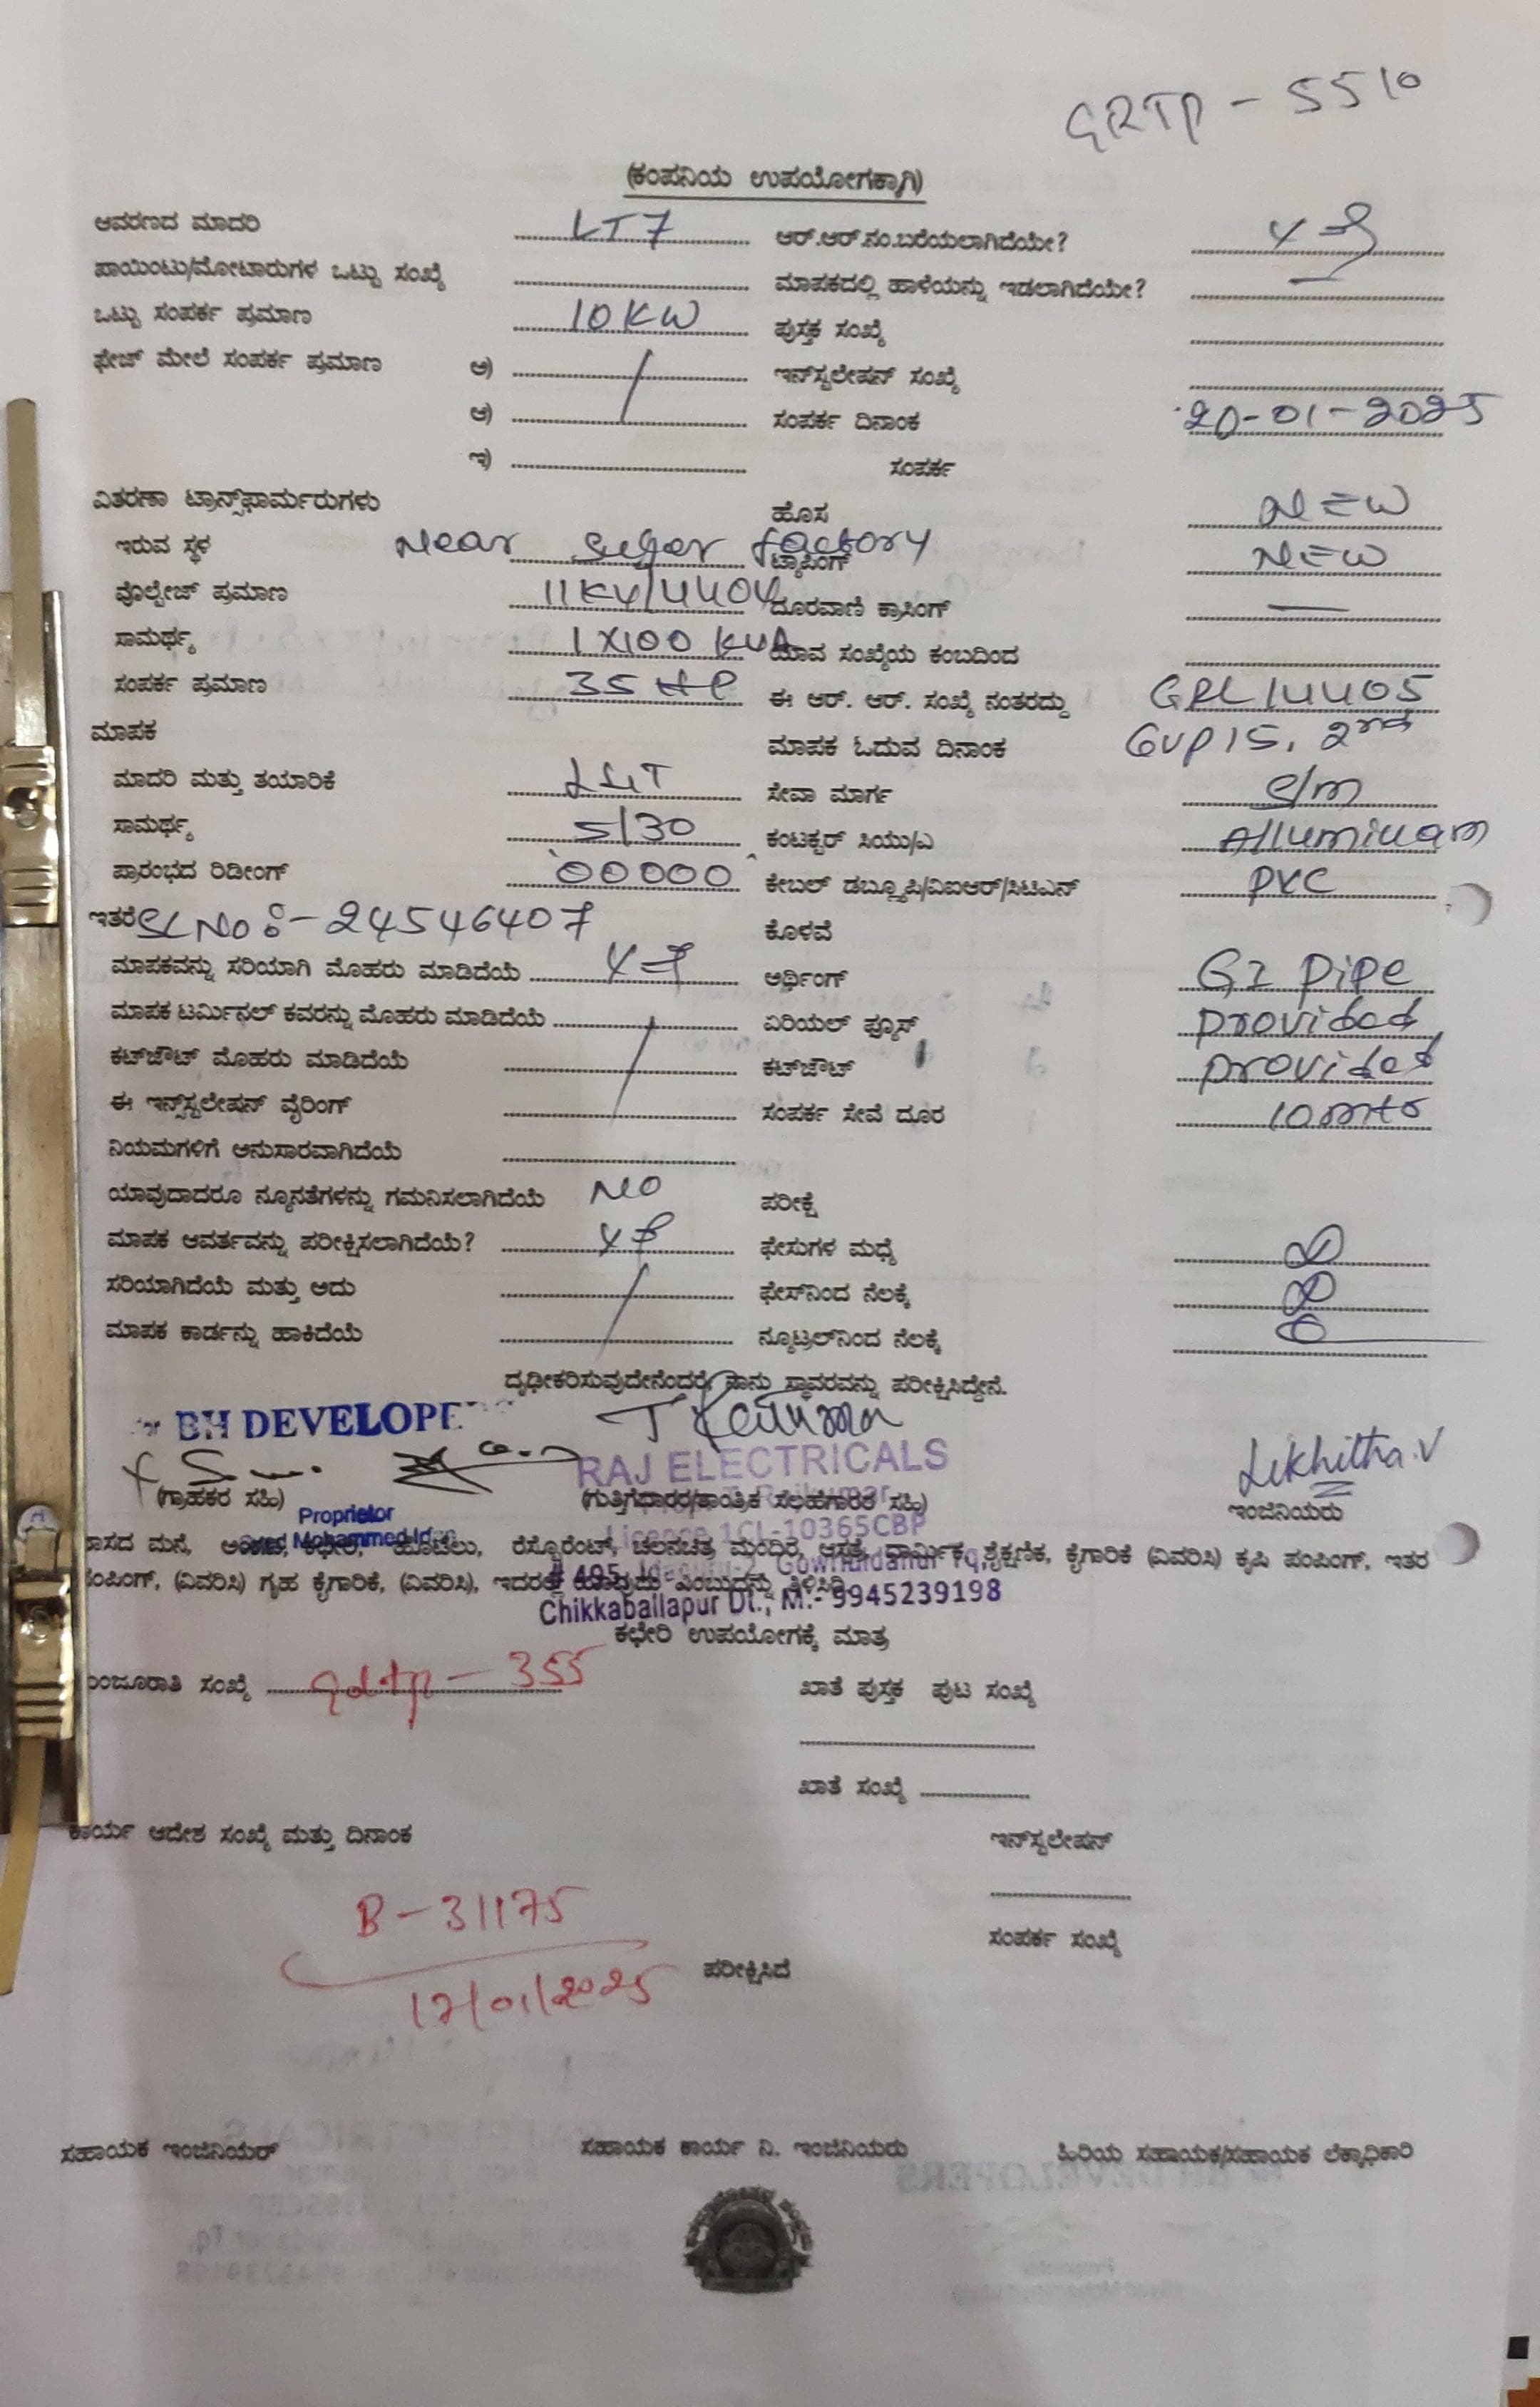 GRTP - 5510
(ಕಂಪನಿಯ ಉಪಯೋಗಕ್ಕಾಗಿ)
ಆವರಣದ ಮಾದರಿ LT7 ಆರ್.ಆರ್.ನಂ.ಬರೆಯಲಾಗಿದೆಯೇ?
ಪಾಯಿಂಟು/ಮೋಟಾರುಗಳ ಒಟ್ಟು ಸಂಖ್ಯೆ ಮಾಪಕದಲ್ಲಿ ಹಾಳೆಯನ್ನು ಇಡಲಾಗಿದೆಯೇ? —
ಒಟ್ಟು ಸಂಪರ್ಕ ಪ್ರಮಾಣ 10 KW ಪುಸ್ತಕ ಸಂಖ್ಯೆ
ಫೇಜ್ ಮೇಲೆ ಸಂಪರ್ಕ ಪ್ರಮಾಣ ಅ) ಇನ್‌ಸ್ಟಲೇಷನ್ ಸಂಖ್ಯೆ
ಆ) ಸಂಪರ್ಕ ದಿನಾಂಕ 20-01-2025
ಇ) ಸಂಪರ್ಕ
ವಿತರಣಾ ಟ್ರಾನ್ಸ್‌ಫಾರ್ಮರುಗಳು ಹೊಸ NEW
ಇರುವ ಸ್ಥಳ Near factory ಟ್ಯಾಪಿಂಗ್ NEW
ವೊಲ್ಟೇಜ್ ಪ್ರಮಾಣ 11KV/440V ದೂರವಾಣಿ ಕ್ರಾಸಿಂಗ್ —
ಸಾಮರ್ಥ್ಯ 1X100 KVA ಯಾವ ಸಂಖ್ಯೆಯ ಕಂಬದಿಂದ
ಸಂಪರ್ಕ ಪ್ರಮಾಣ 35 HP ಈ ಆರ್. ಆರ್. ಸಂಖ್ಯೆ ನಂತರದ್ದು GRL14405
ಮಾಪಕ ಮಾಪಕ ಓದುವ ದಿನಾಂಕ GVP15, 2nd
ಮಾದರಿ ಮತ್ತು ತಯಾರಿಕೆ L&T ಸೇವಾ ಮಾರ್ಗ S/m
ಸಾಮರ್ಥ್ಯ 5/30 ಕಂಟಕ್ಟರ್ ಸಿಯು/ಎ Alluminuam
ಪ್ರಾರಂಭದ ರಿಡೀಂಗ್ 00000 ಕೇಬಲ್ ಡಬ್ಲ್ಯೂಪಿ/ವಿಐಆರ್/ಸಿಟಿಎಸ್ PVC
ಇತರೆ SL No :- 24546407 ಕೊಳವೆ
ಮಾಪಕವನ್ನು ಸರಿಯಾಗಿ ಮೊಹರು ಮಾಡಿದೆಯೆ ಅರ್ಥಿಂಗ್ GI pipe
ಮಾಪಕ ಟರ್ಮಿನಲ್ ಕವರನ್ನು ಮೊಹರು ಮಾಡಿದೆಯೆ ಏರಿಯಲ್ ಫ್ಯೂಸ್ provided
ಕಟ್‌ಜೌಟ್ ಮೊಹರು ಮಾಡಿದೆಯೆ ಕಟ್‌ಜೌಟ್ provided
ಈ ಇನ್ಸ್‌ಸ್ಟಲೇಷನ್ ವೈರಿಂಗ್ ಸಂಪರ್ಕ ಸೇವೆ ದೂರ 10 mtr
ನಿಯಮಗಳಿಗೆ ಅನುಸಾರವಾಗಿದೆಯೆ
ಯಾವುದಾದರೂ ನ್ಯೂನತೆಗಳನ್ನು ಗಮನಿಸಲಾಗಿದೆಯೆ NO ಪರೀಕ್ಷೆ
ಮಾಪಕ ಆವರ್ತವನ್ನು ಪರೀಕ್ಷಿಸಲಾಗಿದೆಯೆ? ಫೇಸುಗಳ ಮಧ್ಯೆ
ಸರಿಯಾಗಿದೆಯೆ ಮತ್ತು ಅದು ಫೇಸ್‌ನಿಂದ ನೆಲಕ್ಕೆ
ಮಾಪಕ ಕಾರ್ಡನ್ನು ಹಾಕಿದೆಯೆ ನ್ಯೂಟ್ರಲ್‌ನಿಂದ ನೆಲಕ್ಕೆ
ದೃಢೀಕರಿಸುವುದೇನೆಂದರೆ, ನಾನು ಸ್ಥಾವರವನ್ನು ಪರೀಕ್ಷಿಸಿದ್ದೇನೆ.
BH DEVELOPE
RAJ ELECTRICALS
Likhitha.V
(ಗ್ರಾಹಕರ ಸಹಿ) (ಗುತ್ತಿಗೆದಾರರ/ತಾಂತ್ರಿಕ ಸಲಹೆಗಾರರ ಸಹಿ) ಇಂಜಿನಿಯರು
Proprietor
Licence 1CL-10365CBP
ರೆಸ್ಟೊರೆಂಟ್, ಚಲನಚಿತ್ರ ಮಂದಿರ, ಶೈಕ್ಷಣಿಕ, ಕೈಗಾರಿಕೆ (ವಿವರಿಸಿ) ಕೃಷಿ ಪಂಪಿಂಗ್, ಇತರ
ಪಂಪಿಂಗ್, (ವಿವರಿಸಿ) ಗೃಹ ಕೈಗಾರಿಕೆ, (ವಿವರಿಸಿ),
Chikkaballapur Dt., M:- 9945239198
ಕಛೇರಿ ಉಪಯೋಗಕ್ಕೆ ಮಾತ್ರ
ಮಂಜೂರಾತಿ ಸಂಖ್ಯೆ gdtp - 355 ಖಾತೆ ಪುಸ್ತಕ ಪುಟ ಸಂಖ್ಯೆ
ಖಾತೆ ಸಂಖ್ಯೆ
ಕಾರ್ಯ ಆದೇಶ ಸಂಖ್ಯೆ ಮತ್ತು ದಿನಾಂಕ ಇನ್‌ಸ್ಟಲೇಷನ್
B - 31175
ಸಂಪರ್ಕ ಸಂಖ್ಯೆ
17/01/2025 ಪರೀಕ್ಷಿಸಿದೆ
ಸಹಾಯಕ ಇಂಜಿನಿಯರ್ ಸಹಾಯಕ ಕಾರ್ಯ ನಿ. ಇಂಜಿನಿಯರು ಹಿರಿಯ ಸಹಾಯಕ/ಸಹಾಯಕ ಲೆಕ್ಕಾಧಿಕಾರಿ